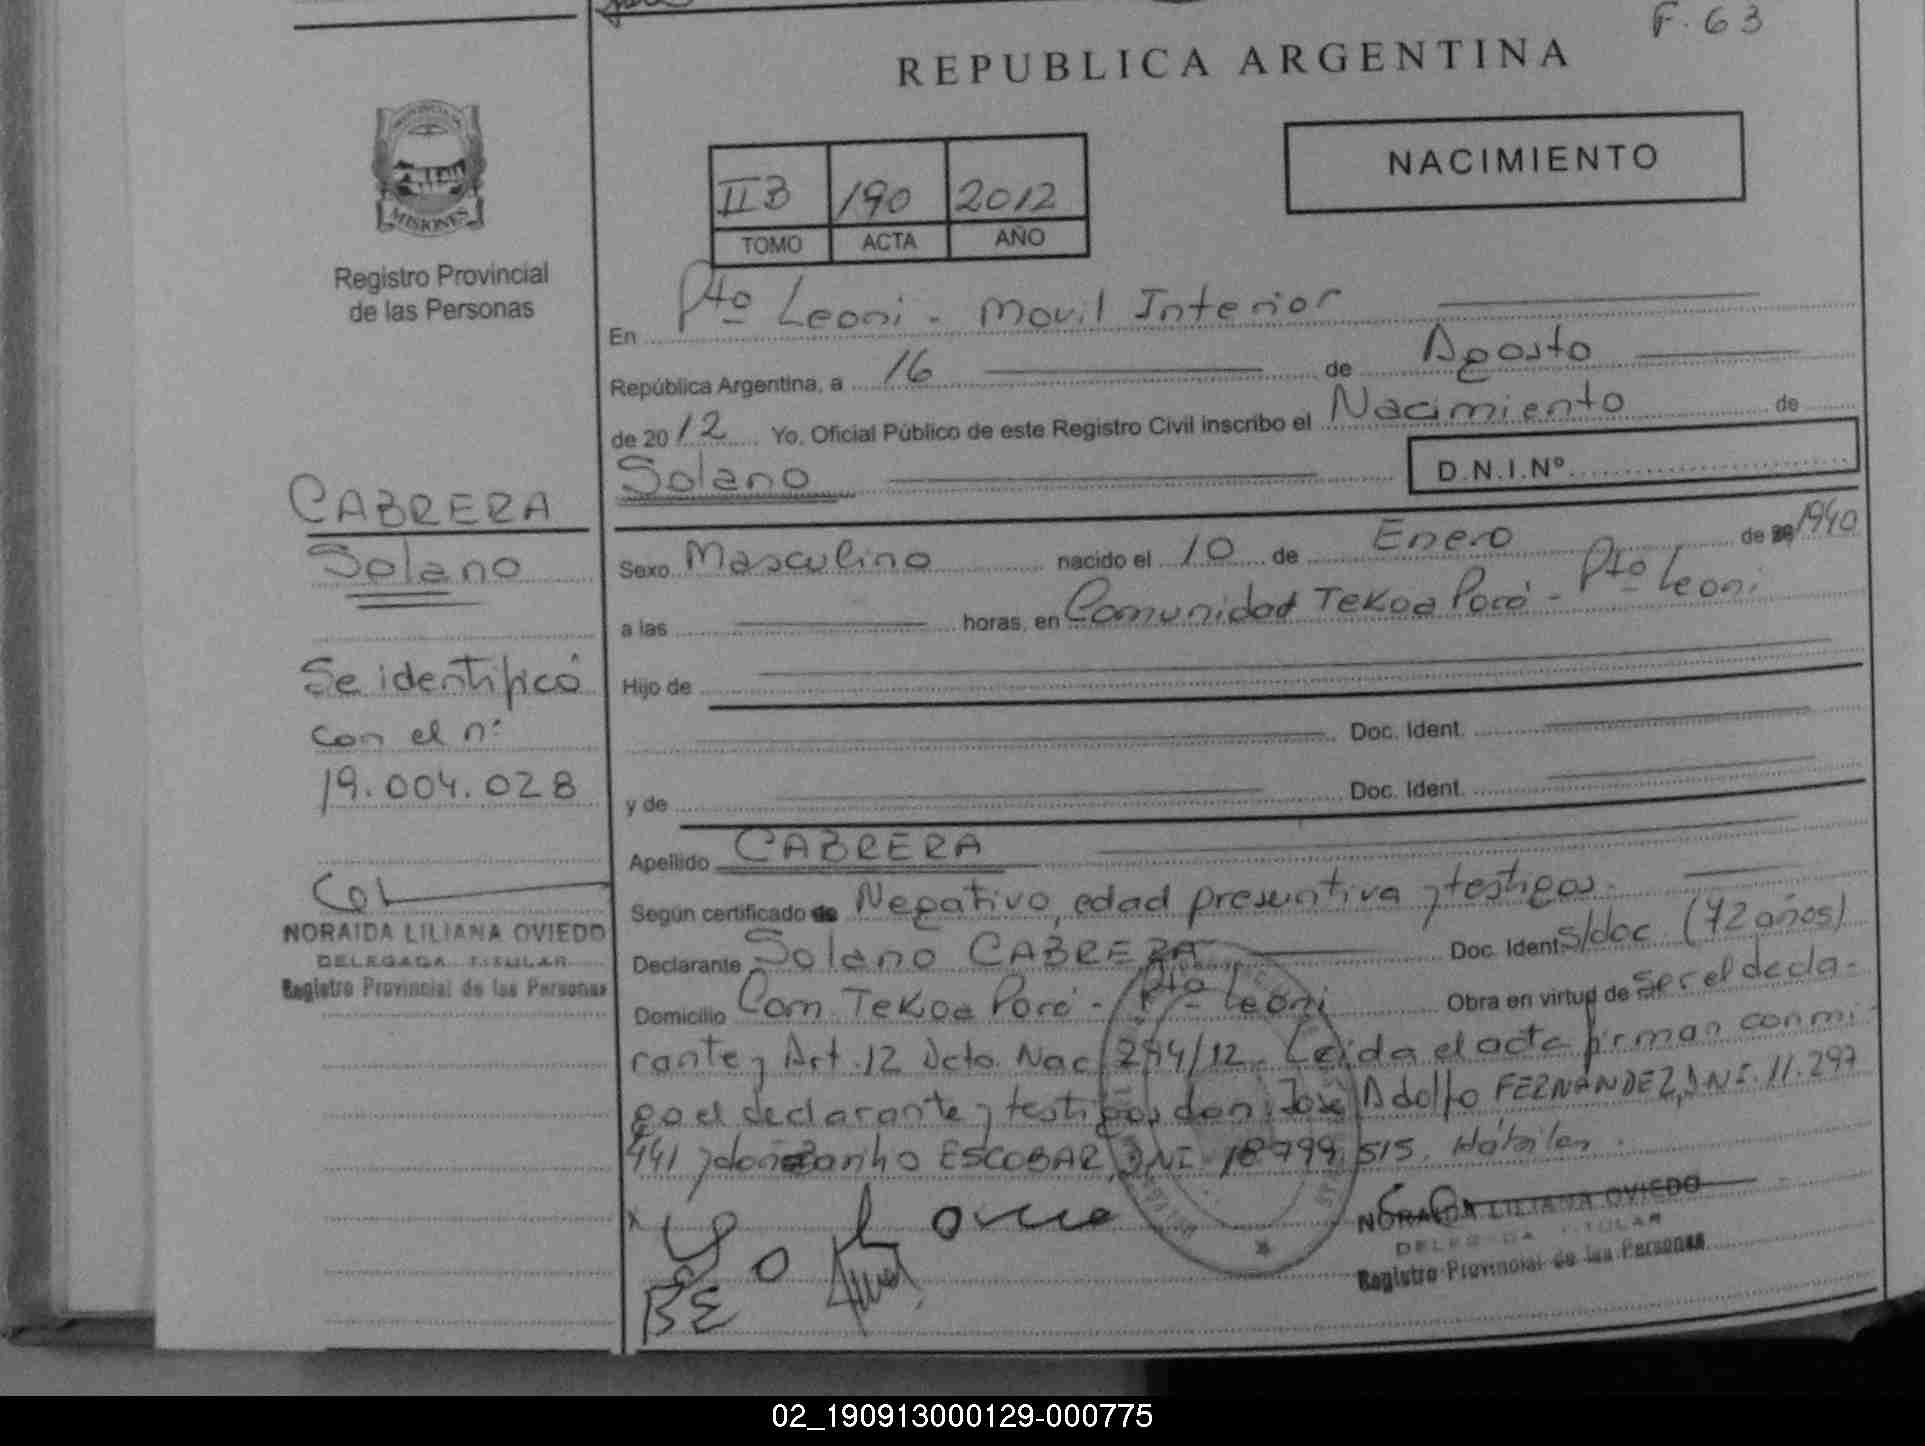 F. 63
REPUBLICA ARGENTINA
MISIONES
Registro Provincial
de las Personas
NACIMIENTO
IIB 190 2012
TOMO ACTA AÑO
En Pto Leoni - Movil Interior
República Argentina, a 16 de Agosto
de 2012 Yo, Oficial Público de este Registro Civil inscribo el Nacimiento de
Solano D.N.I.Nº
CABRERA
Solano
Se identificó
con el nº
19.004.028
NORAIDA LILIANA OVIEDO
DELEGADA TITULAR
Registro Provincial de las Personas
Sexo Masculino nacido el 10 de Enero de 1940
a las horas, en Comunidad Tekoa Porá - Pto Leoni
Hijo de
Doc. Ident.
y de Doc. Ident.
Apellido CABRERA
Según certificado de Negativo, edad presuntiva y testigos.
Declarante Solano CABRERA Doc. Ident. s/doc (72 años)
Domicilio Com. Tekoa Porá - Pto Leoni Obra en virtud de ser el decla-
rante y Art. 12 Dcto. Nac. 294/12. Leída el acta firman conmi-
go el declarante y testigos don José Adolfo FERNANDEZ, DNI. 11.297
441 y ESCOBAR, DNI 18799.515. Hábiles.
BE
NORAIDA LILIANA OVIEDO
DELEGADA TITULAR
Registro Provincial de las Personas
02_190913000129-000775